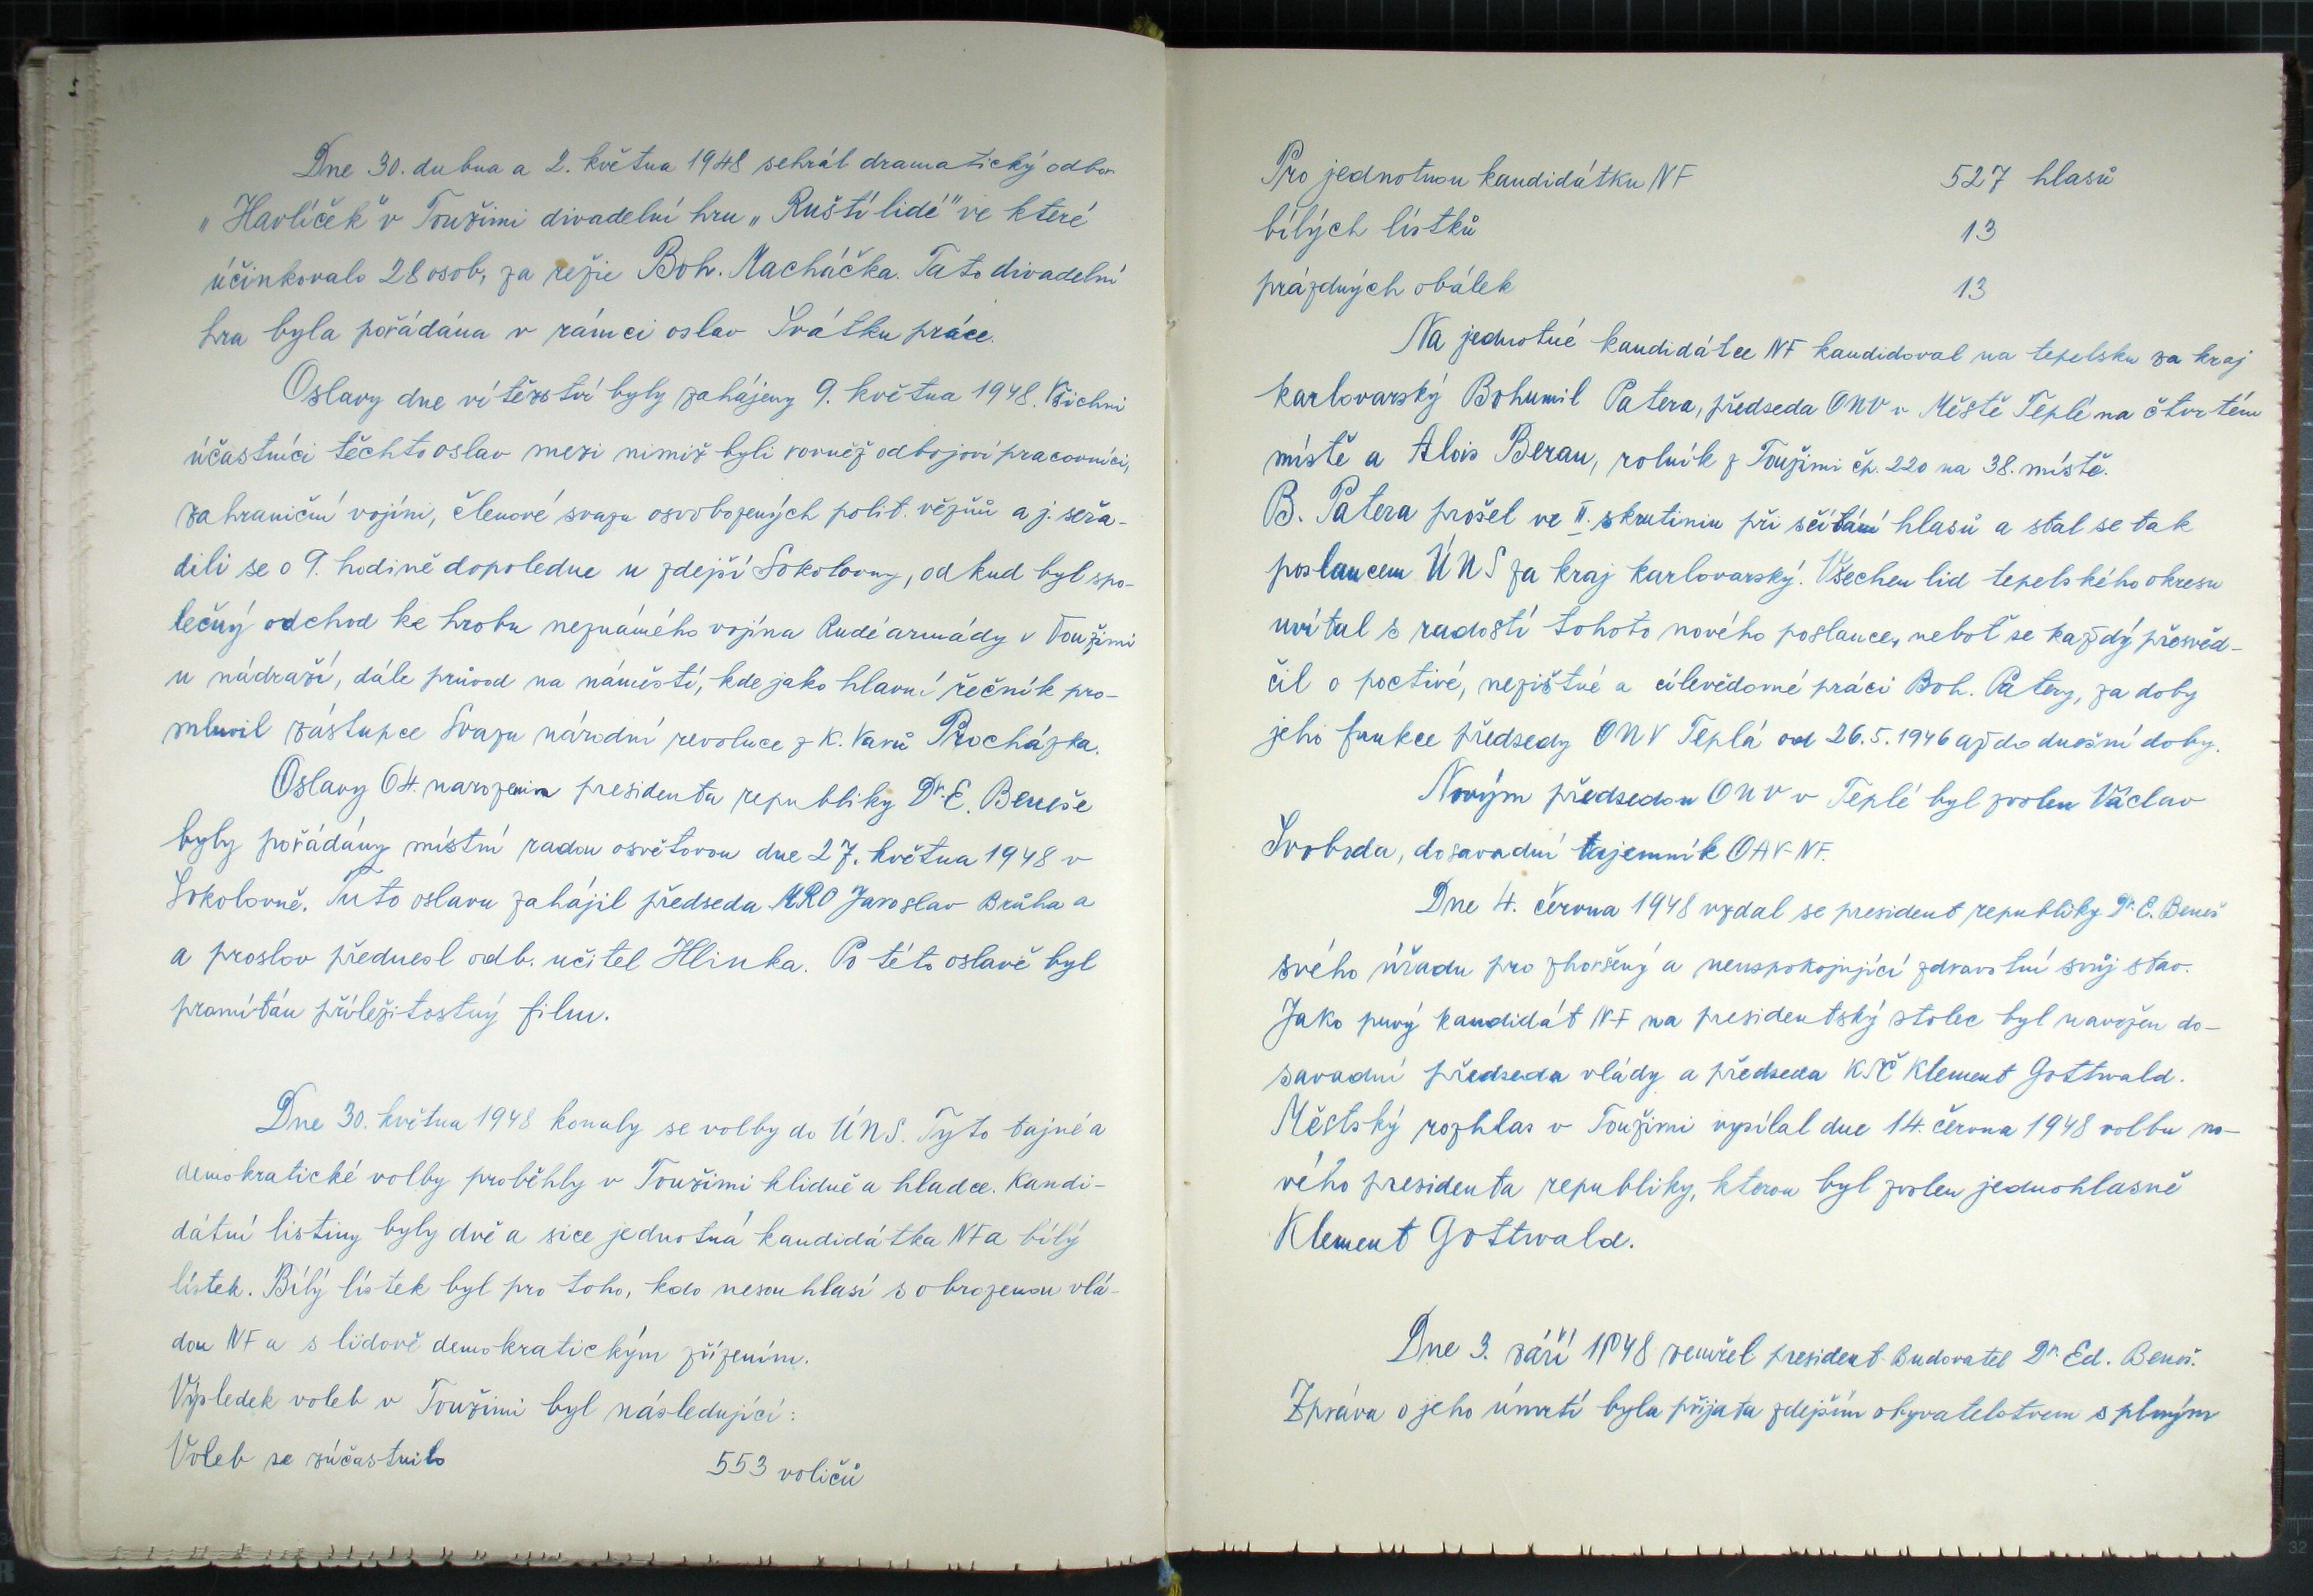 Dne 30. dubna a 2. května 1948 sehrál dramatický odbor
„Havlíček" v Toužimi divadelní hru „Ruští lidé" ve které
účinkovalo 28 osob, za režie Boh. Macháčka. Tato divadelní
hra byla pořádána v rámci oslav Svátku práce.
Oslavy dne vítězství byly zahájeny 9. května 1948. Všichni
účastníci těchto oslav mezi nimiž byli rovněž odbojoví pracovníci,
zahraniční vojíni, členové svazu osvobozených polit. vězňů a j. seřa-
dili se o 9. hodině dopoledne u zdejší Sokolovny, odkud byl spo-
lečný odchod ke hrobu neznámého vojína Rudé armády v Toužimi
u nádraží, dále průvod na náměstí, kde jako hlavní řečník pro-
mluvil zástupce Svazu národní revoluce z K. Varů Procházka.
Oslavy 64. narozenin presidenta republiky Dr. E. Beneše
byly pořádány místní radou osvětovou dne 27. května 1948 v
Sokolovně. Tuto oslavu zahájil předseda MRO Jaroslav Brůha a
a proslov přednesl odb. učitel Hlinka. Po této oslavě byl
promítán příležitostný film.
Dne 30. května 1948 konaly se volby do ÚNS. Tyto tajné a
demokratické volby proběhly v Toužimi klidně a hladce. Kandi-
dátní listiny byly dvě a sice jednotná kandidátka NF a bílý
lístek. Bílý lístek byl pro toho, kdo nesouhlasí s obrozenou vlá-
dou NF a s lidově demokratickým zřízením.
Výsledek voleb v Toužimi byl následující:
Voleb se zúčastnilo 553 voličů
Pro jednotnou kandidátku NF 527 hlasů
bílých lístků 13
prázdných obálek 13
Na jednotné kandidátce NF kandidoval na tepelsku za kraj
karlovarský Bohumil Patera, předseda ONV v Městě Teplé na čtvrtém
místě a Alois Beran, rolník z Toužimi čp. 220 na 38. místě.
B. Patera prošel ve II. skrutiniu při sčítání hlasů a stal se tak
poslancem ÚNS za kraj karlovarský. Všechen lid tepelského okresu
uvítal s radostí tohoto nového poslance, neboť se každý přesvěd-
čil o poctivé, nezištné a cílevědomé práci Boh. Patery, za doby
jeho funkce předsedy ONV Teplá od 26.5.1946 až do dnešní doby.
Novým předsedou ONV v Teplé byl zvolen Václav
Svoboda, dosavadní tajemník OAV-NF.
Dne 4. června 1948 vzdal se president republiky Dr. E. Beneš
svého úřadu pro zhoršený a neuspokojující zdravotní svůj stav.
Jako nový kandidát NF na presidentský stolec byl navržen do-
savadní předseda vlády a předseda KSČ Klement Gottwald.
Městský rozhlas v Toužimi vysílal dne 14. června 1948 volbu no-
vého presidenta republiky, kterou byl zvolen jednohlasně
Klement Gottwald.
Dne 3. září 1948 zemřel president Budovatel Dr. Ed. Beneš.
Zpráva o jeho úmrtí byla přijata zdejším obyvatelstvem s plným